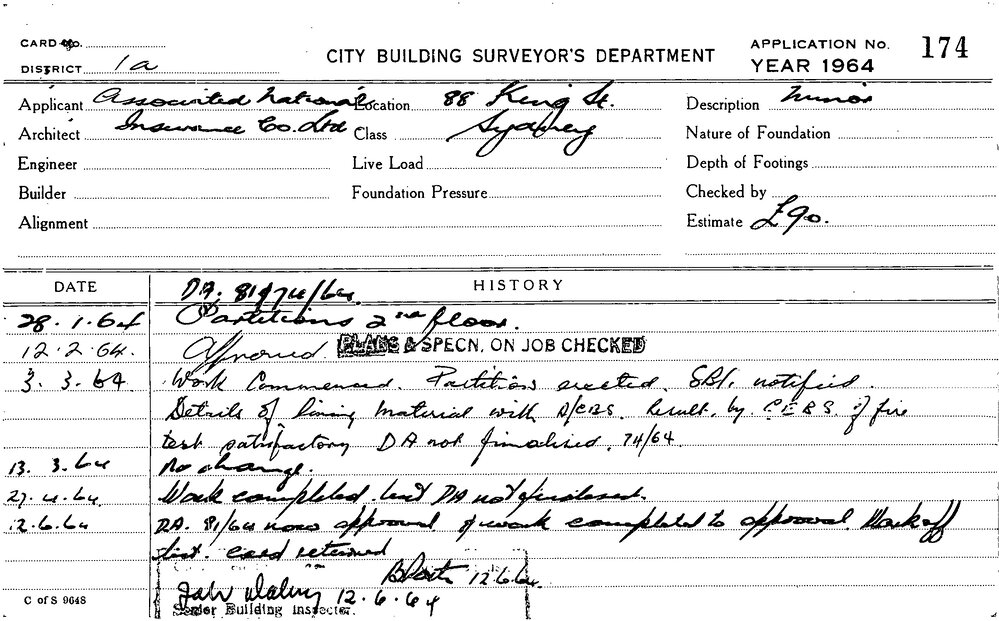 CARD No.
DISTRICT 1a
CITY BUILDING SURVEYOR'S DEPARTMENT
APPLICATION No. 174
YEAR 1964
Applicant Associated National Location 88 King St. Description Minor
Architect Insurance Co. Ltd Class Sydney Nature of Foundation
Engineer Live Load Depth of Footings
Builder Foundation Pressure Checked by
Alignment Estimate £90.
DATE HISTORY
DA. 81/64
28.1.64 Partitions 2nd floor.
12.2.64. Approved. PLANS & SPECN. ON JOB CHECKED
3.3.64 Work Commenced. Partitions erected. SBI. notified.
Details of lining material with Result. by of fire
test satisfactory DA not finalised. 74/64.
13.3.64 No change.
27.4.64 Work completed but DA not finalised.
12.6.64 DA. 81/64 now approved & work completed to approval Mark off
list. card returned
12.6.64.
12.6.64
Senior Building Inspector.
C of S 9648